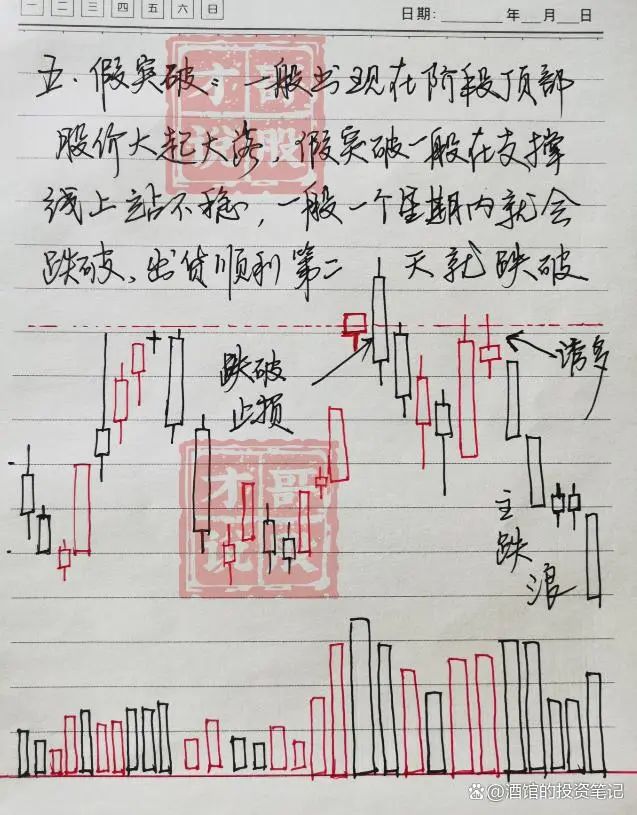 一 二 三 四 五 六 日
日期: 年 月 日
五.假突破:一般出现在阶段顶部
股价大起大落,假突破一般在支撑
线上站不稳,一般一个星期内就会
跌破、出货顺利第二 天就跌破
跌破
止损
诱多
主
跌
浪
才哥
说股
才哥
说股
@酒馆的投资笔记